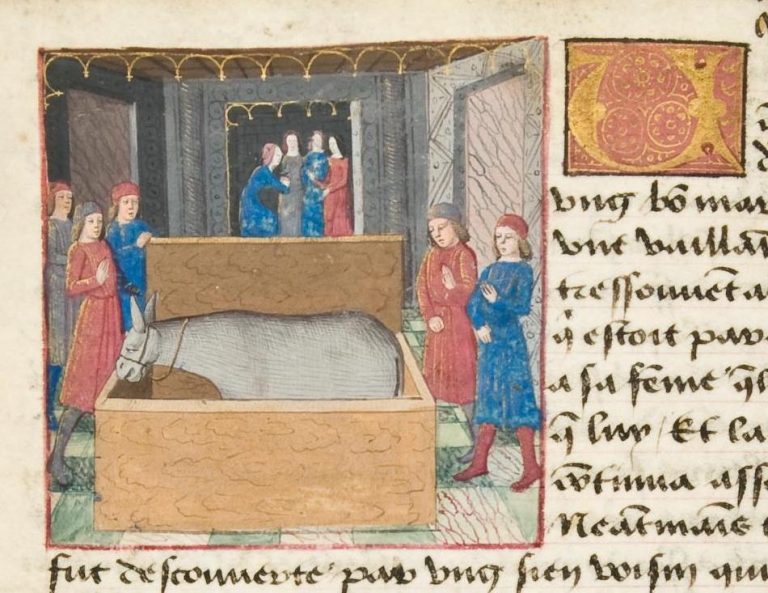 U
ung bõ mar
une vaillan
tressouuẽt a
q̃ estoit par
a sa fẽme q̃l
q̃ luy / Et la
cõtinua ass
Neãtmais t
fut descouuerte par ung sien voisin qui